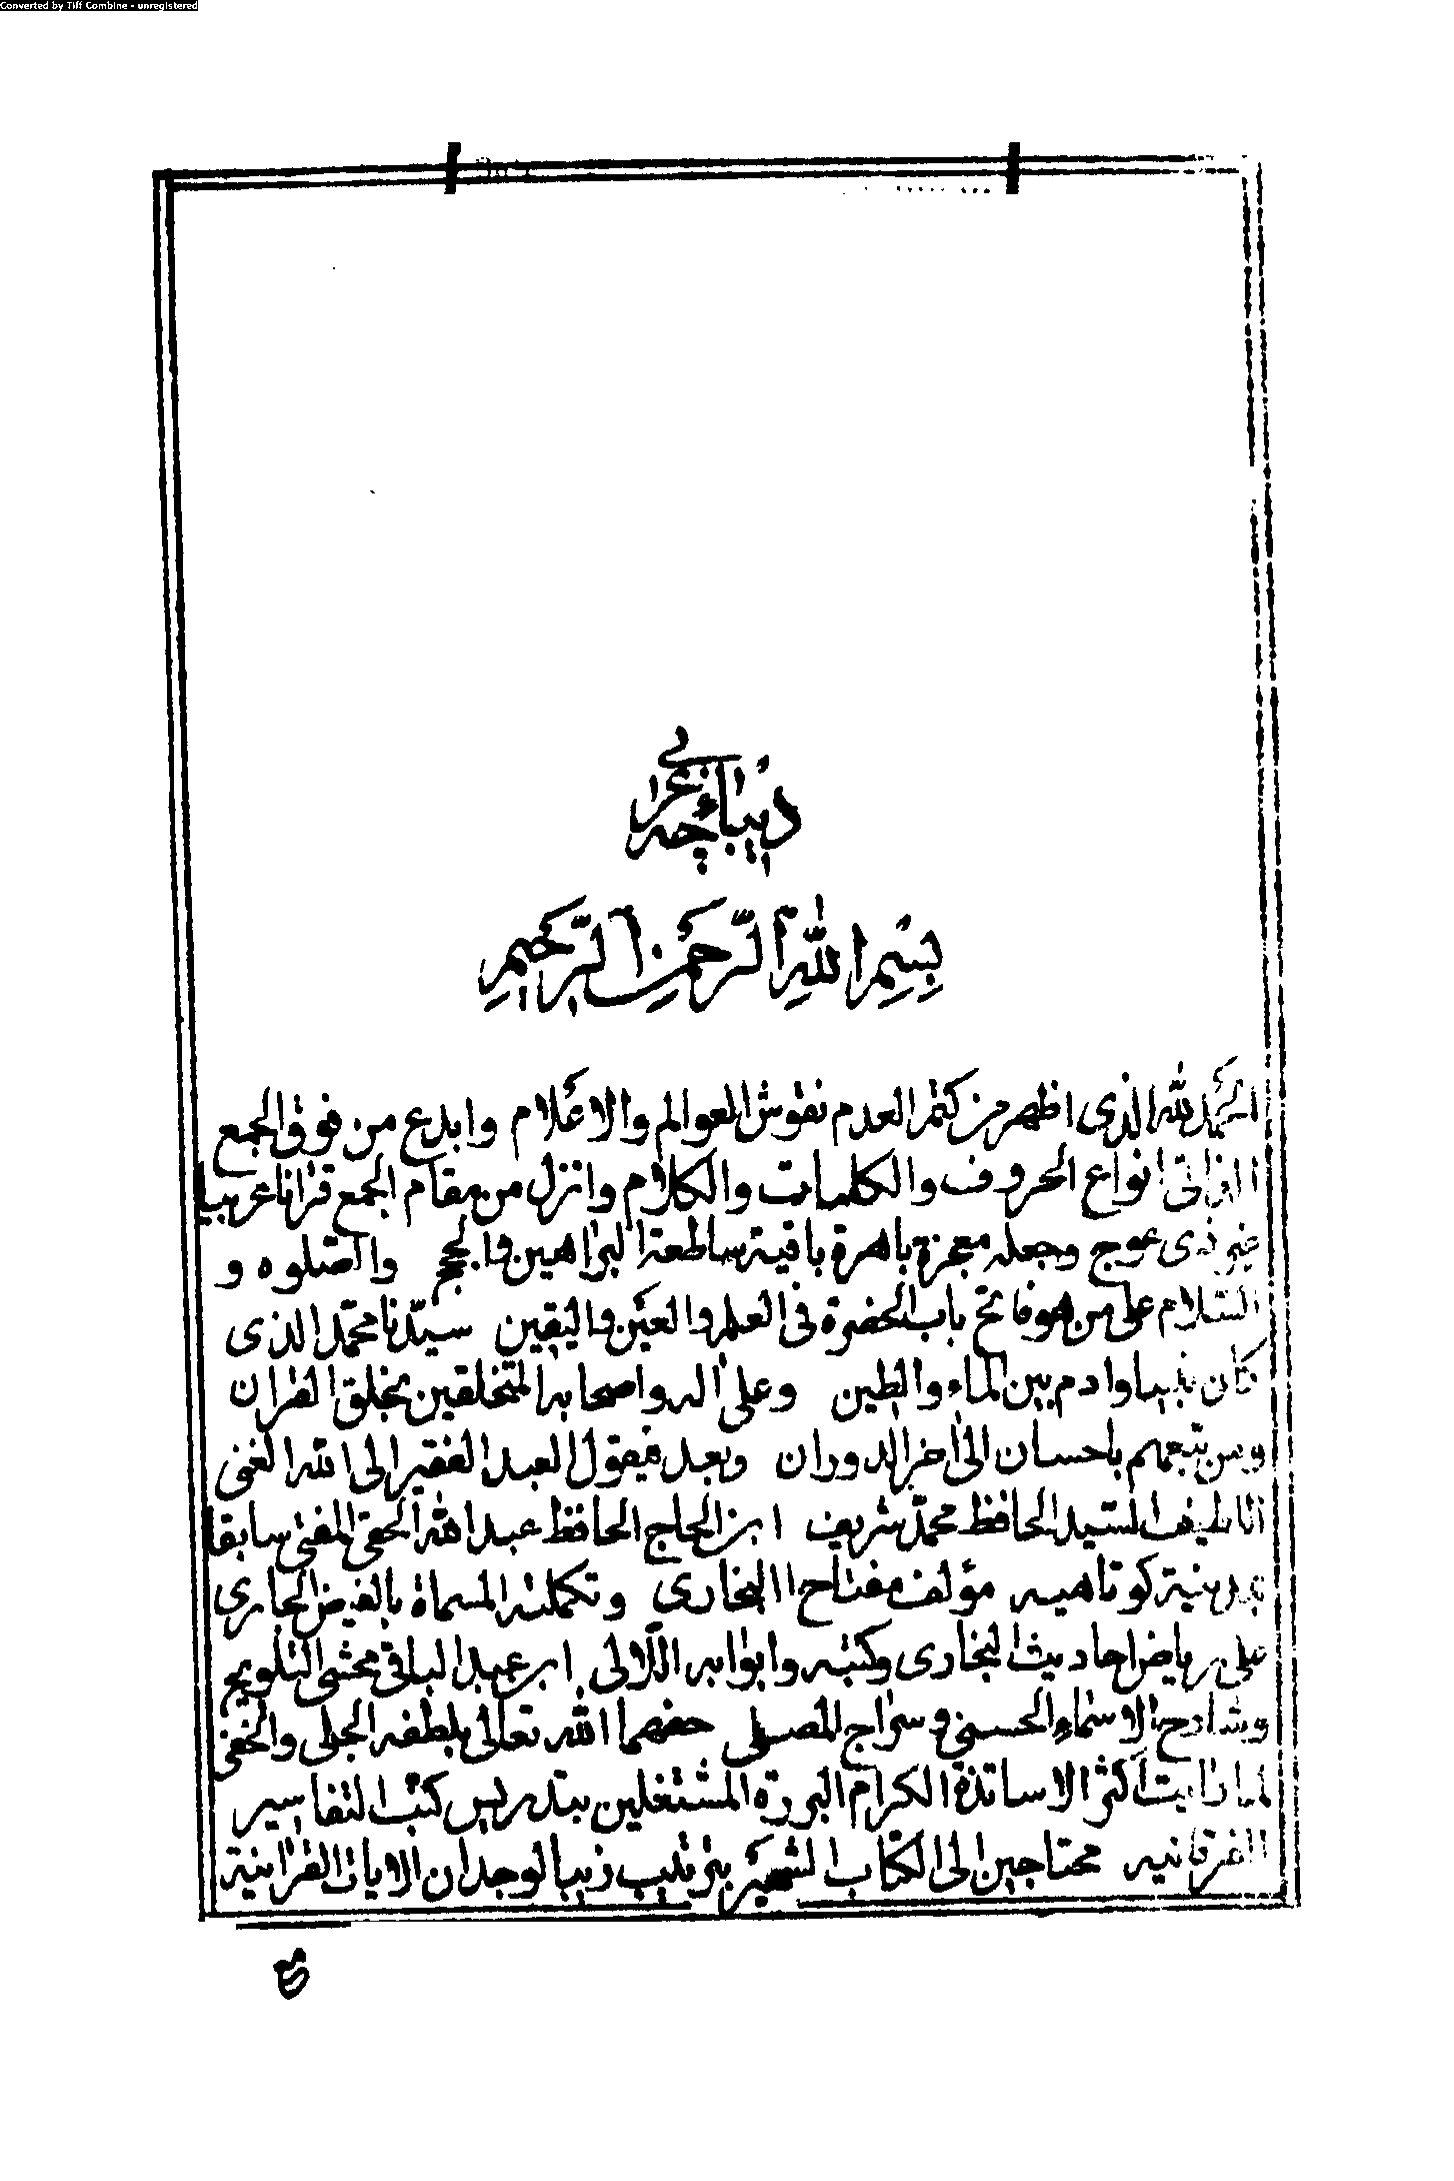 Converted by Tiff Combine - unregistered
ديباجۀ عربى
بِسْمِ اللّٰهِ الرَّحْمٰنِ الرَّحِيمِ
الحمد لله الذى اظهر من كتم العدم نقوش العوالم والاعلام وابدع من فوق الجمع
انواع الحروف والكلمات والكلام وانزل من مقام الجمع قرانا عربيا
غير ذى عوج وجعله معجزة باهرة باقية ساطعة البراهين والحجج والصلوه و
السلام على من هو فاتح باب الحضرة فى العلم والعين واليقين سيّدنا محمّد الذى
كان نبيا وادم بين الماء والطين وعلى اله واصحابه المتخلقين بخلق القران
ومن تبعهم باحسان الى اخر الدوران وبعد فيقول العبد الفقير الى الله الغنى
السيد الحافظ محمّد شريف ابن الحاج الحافظ عبد الله الحقى المفتى سابقا
بمدينة كوتاهيه مؤلف مفتاح البخارى وتكملته المسماة بالفيض الجارى
على رياض احاديث البخارى وكتبه وابوابه اللآلى ابن عبد الباقى محشى التلويح
وشارح الاسماء الحسنى وسراج المصلى حفهما الله تعالى بلطفه الجلى والخفى
لما رايت اكثر الاساتذة الكرام البررة المشتغلين بتدريس كتب التفاسير
الفرقانيه محتاجين الى الكتاب الشهير بترتيب زيبا لوجدان الايات القرانية